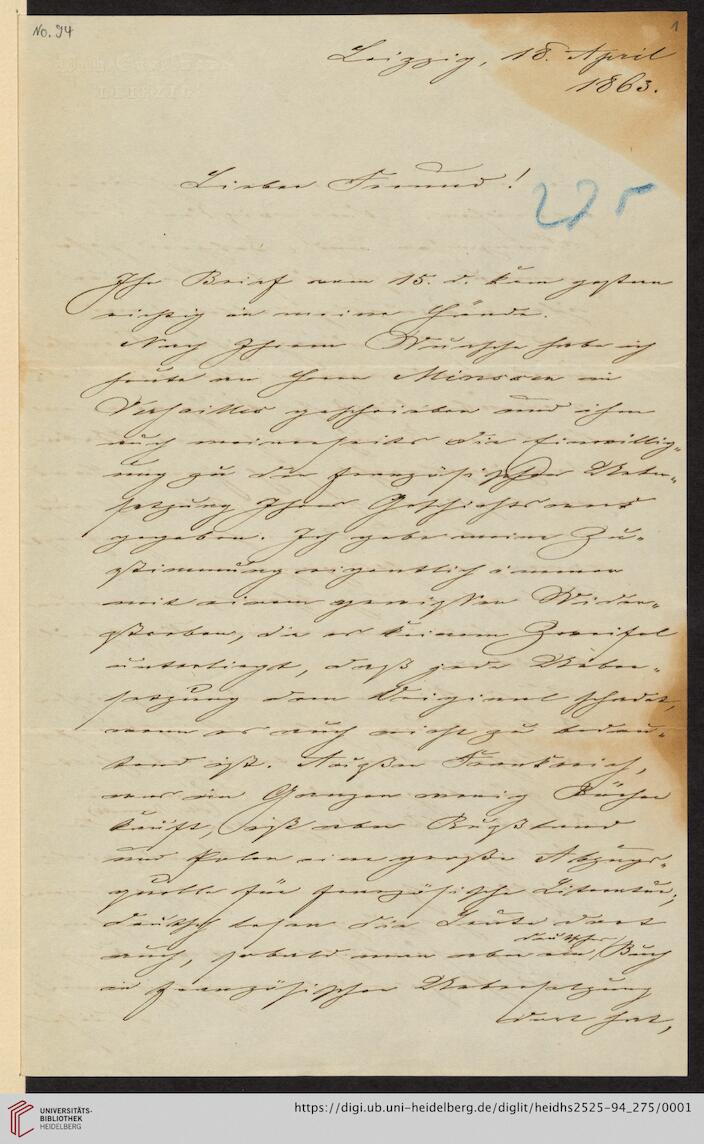 No. 94
1
Leipzig, 18. April
1863.
Lieber Freund!
275
Ihr Brief vom 15. d. kam gestern
richtig in meine Hände.
Nach Ihrem Wunsche habe ich
heute an Herrn Minssen in
Versailles geschrieben und ihm
auch meinerseits die Einwillig„
ung zu der französischen Ueber„
setzung Ihres Geschichtswerks
gegeben. Ich gebe meine Zu„
stimmung eigentlich immer
mit einem gewissen Wider„
streben, da es keinem Zweifel
unterliegt, daß jede Ueber„
setzung dem Original schadet,
wenn es auch nicht zu bedeu„
tend ist. Außer Frankreich,
was im Ganzen wenig Bücher
kauft, ist aber Rußland
und Polen eine große Abzugs„
quelle für französische Literatur;
deutsch lesen die Leute dort
auch, sobald man aber ein deutsches Buch
in französischer Uebersetzung
dort hat,
UNIVERSITÄTS-
BIBLIOTHEK
HEIDELBERG
https://digi.ub.uni-heidelberg.de/diglit/heidhs2525-94_275/0001